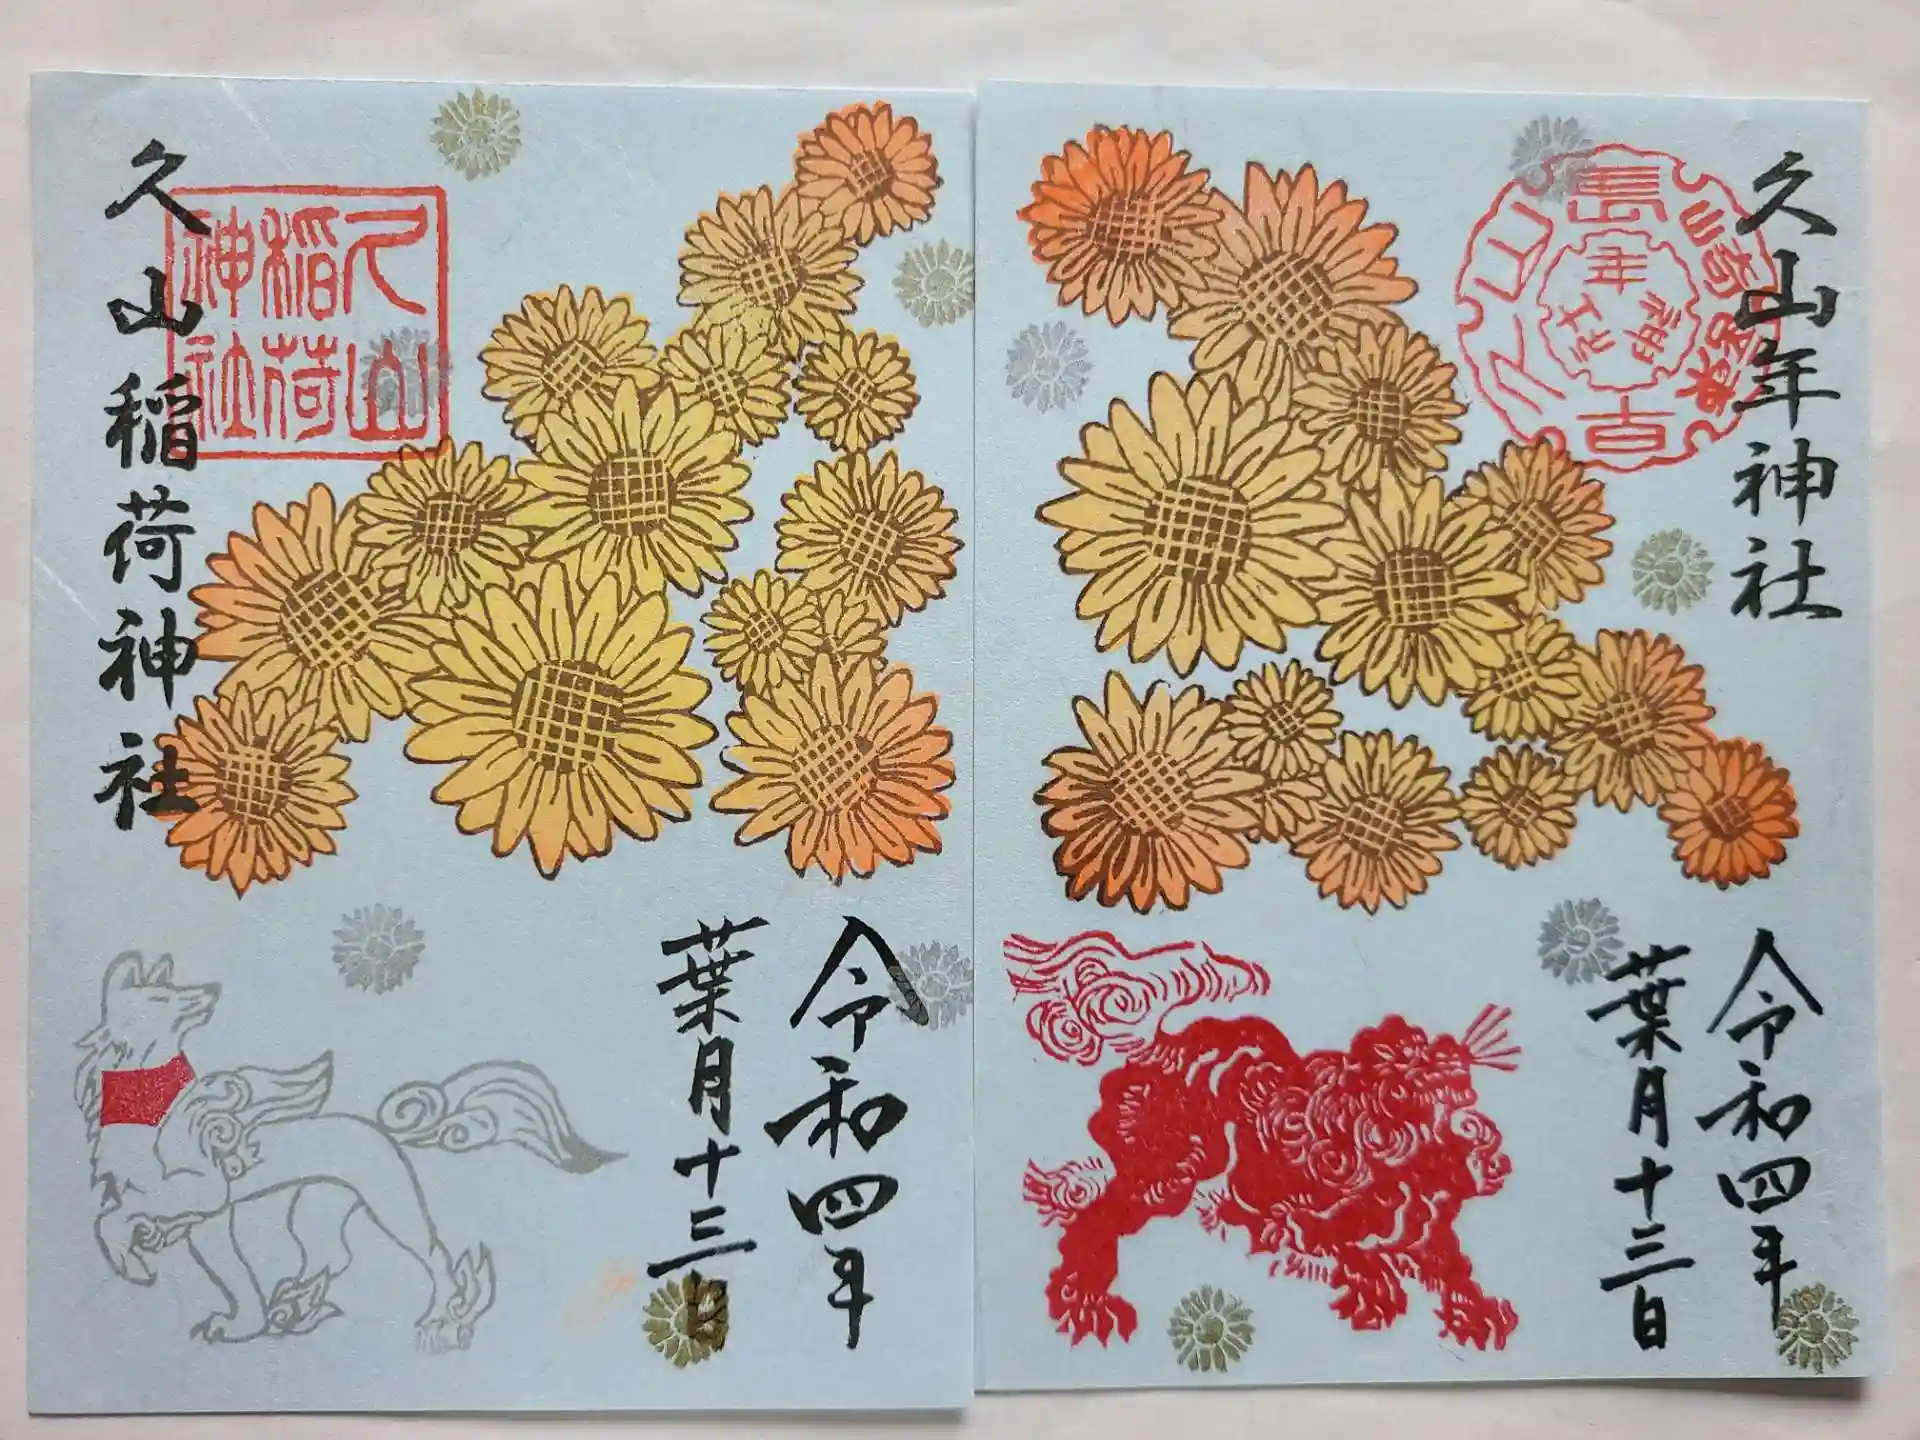 久山年神社
年神社
令和四年
葉月十三日
久山稲荷神社
久山
稲荷
神社
令和四年
葉月十三日